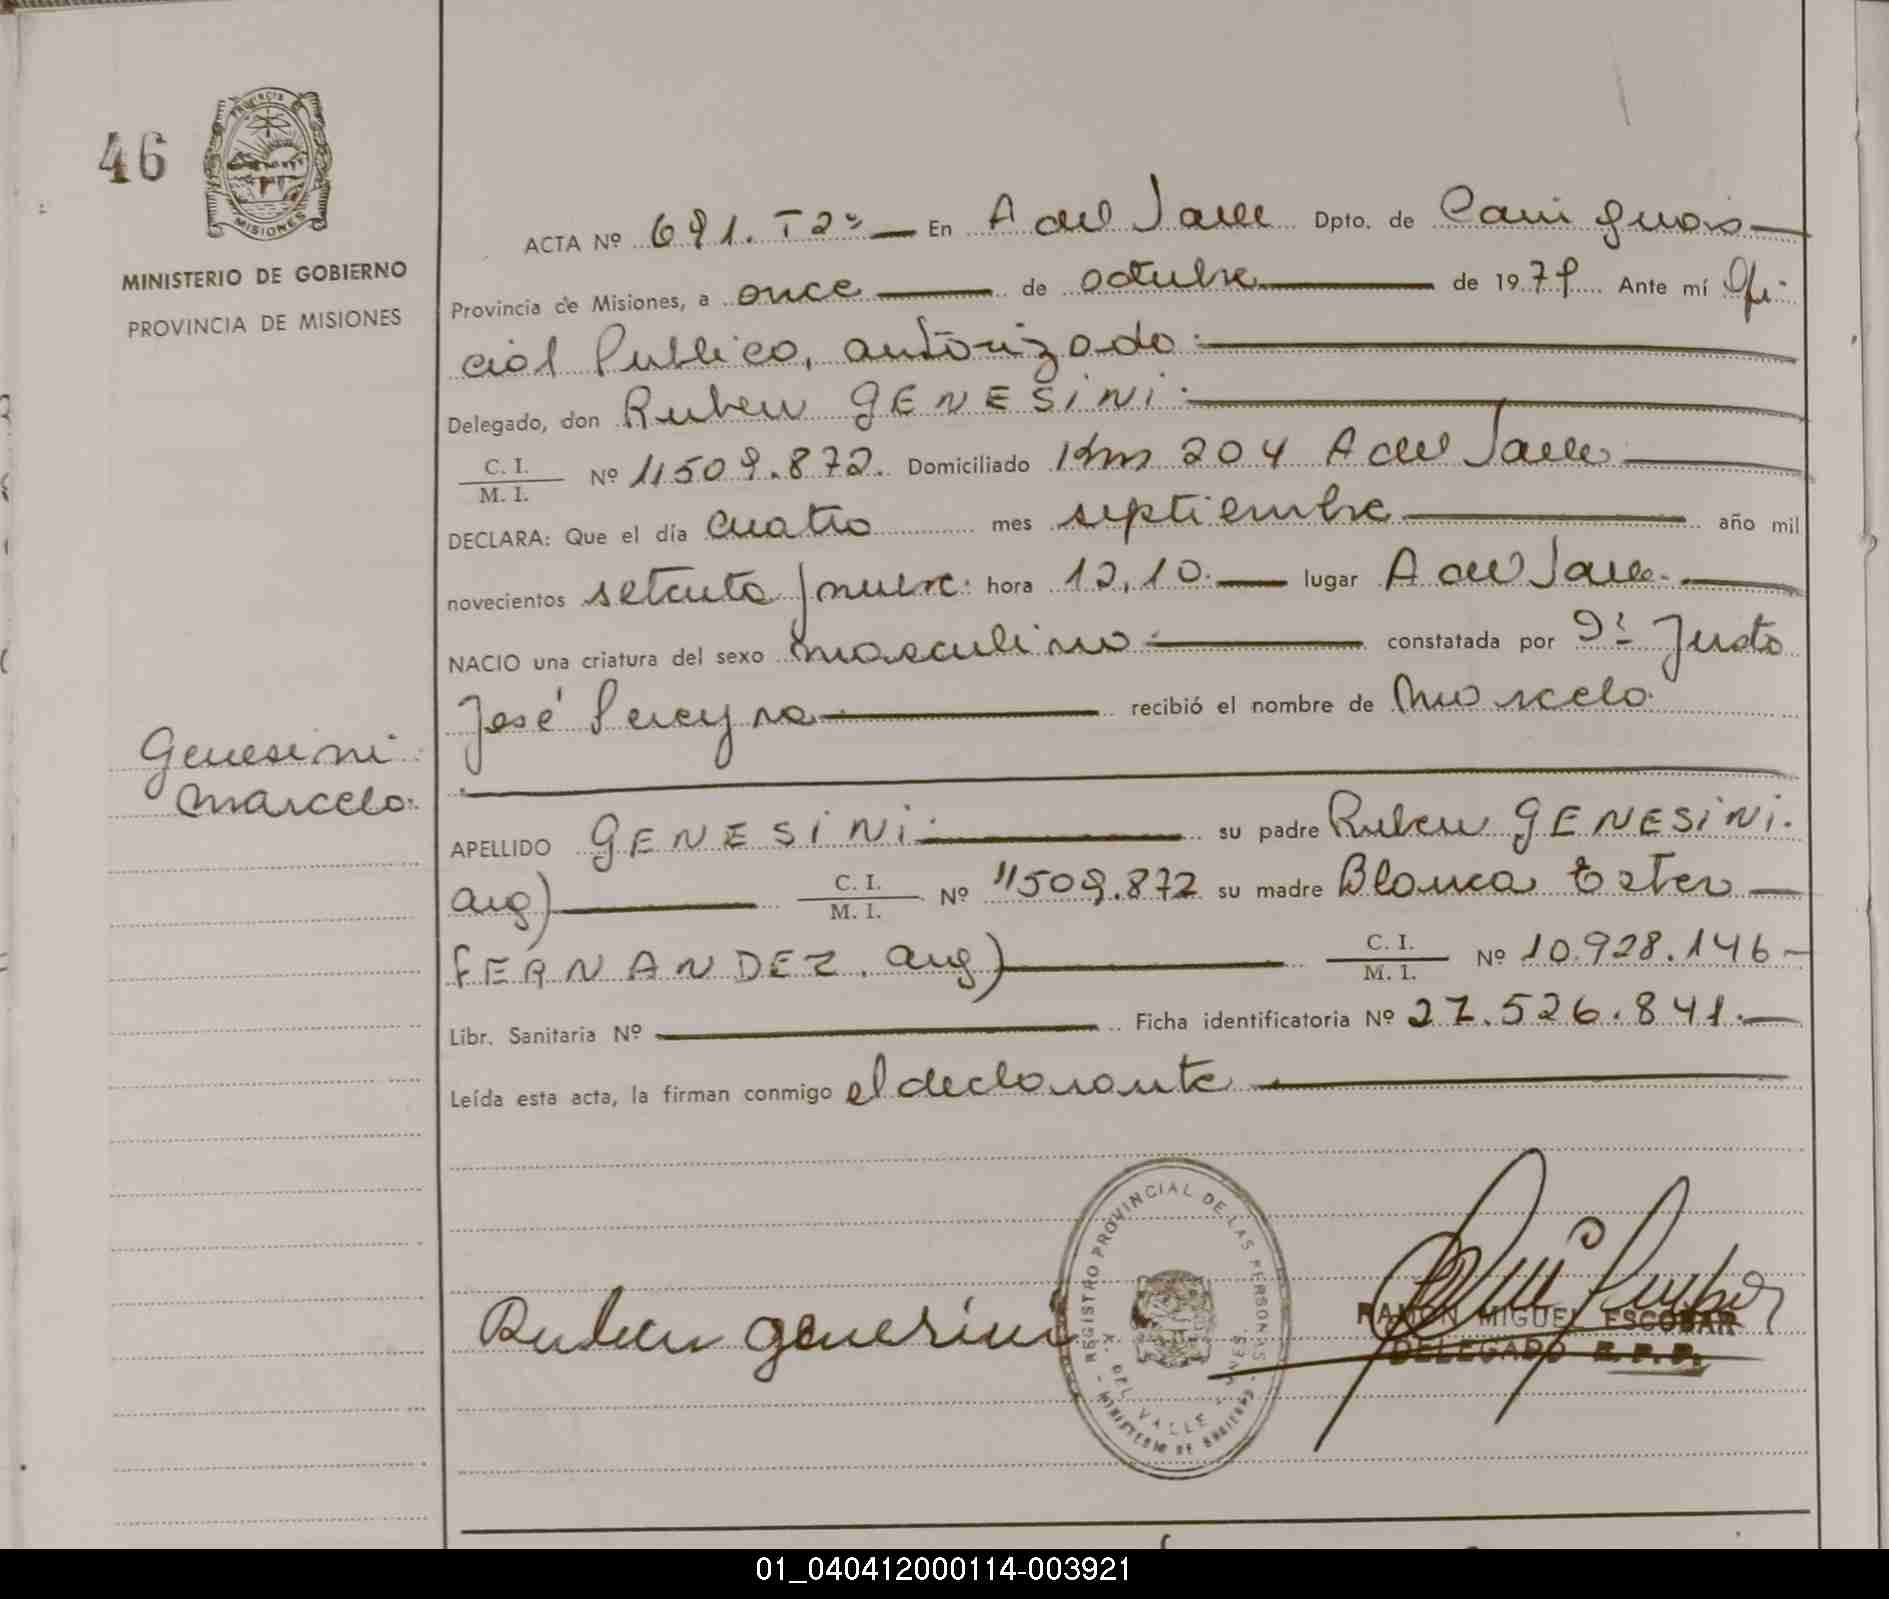 46
PROVINCIA DE
MISIONES
MINISTERIO DE GOBIERNO
PROVINCIA DE MISIONES
ACTA Nº 691. T2º En A del Valle Dpto. de Cainguas
Provincia de Misiones, a once de octubre de 1979 Ante mí Ofi-
cial Publico, autorizado
Delegado, don Ruben GENESiNi
C. I.
M. I. Nº 11509.872. Domiciliado Km 204 A del Valle
DECLARA: Que el día cuatro mes septiembre año mil
novecientos setenta y nueve hora 12,10 lugar A del Valle
NACIO una criatura del sexo masculino constatada por Dr Justo
José Pereyra recibió el nombre de Marcelo
Genesini
Marcelo
APELLIDO GENESiNi su padre Ruben GENESiNi.
arg) C. I.
M. I. Nº 11509.872 su madre Blanca Ester
FERNANDEZ. arg) C. I.
M. I. Nº 10.928.146
Libr. Sanitaria Nº Ficha identificatoria Nº 27.526.841.
Leída esta acta, la firman conmigo el declarante
Ruben genesini
REGISTRO PROVINCIAL DE LAS PERSONAS
DEL VALLE
MINISTERIO DE GOBIERNO
RAMON MIGUEL ESCOBAR
DELEGADO R. P. P.
01_040412000114-003921